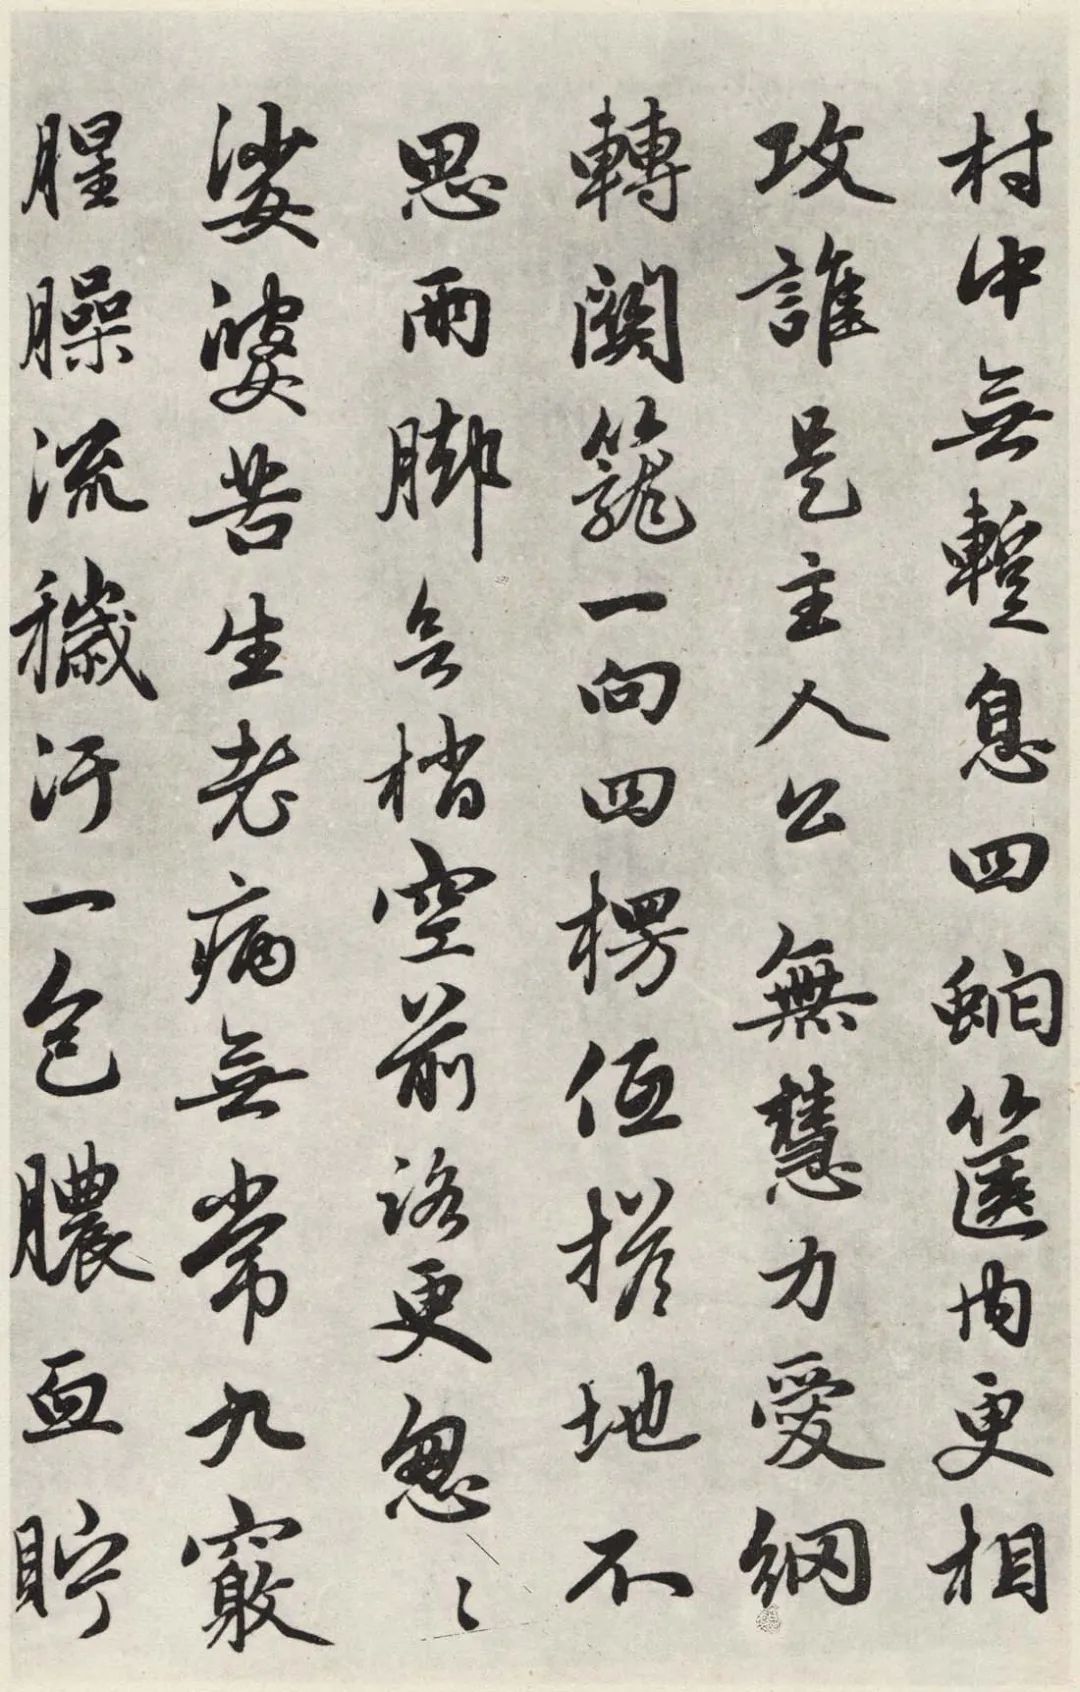 村中無蹔息四蛇篋内更相
攻誰是主人公無慧力愛網
轉關籠一向四楞低搭地不
思兩脚会梢空前路更怱〻
娑婆苦生老病無常九竅
腥臊流穢汙一包膿血貯